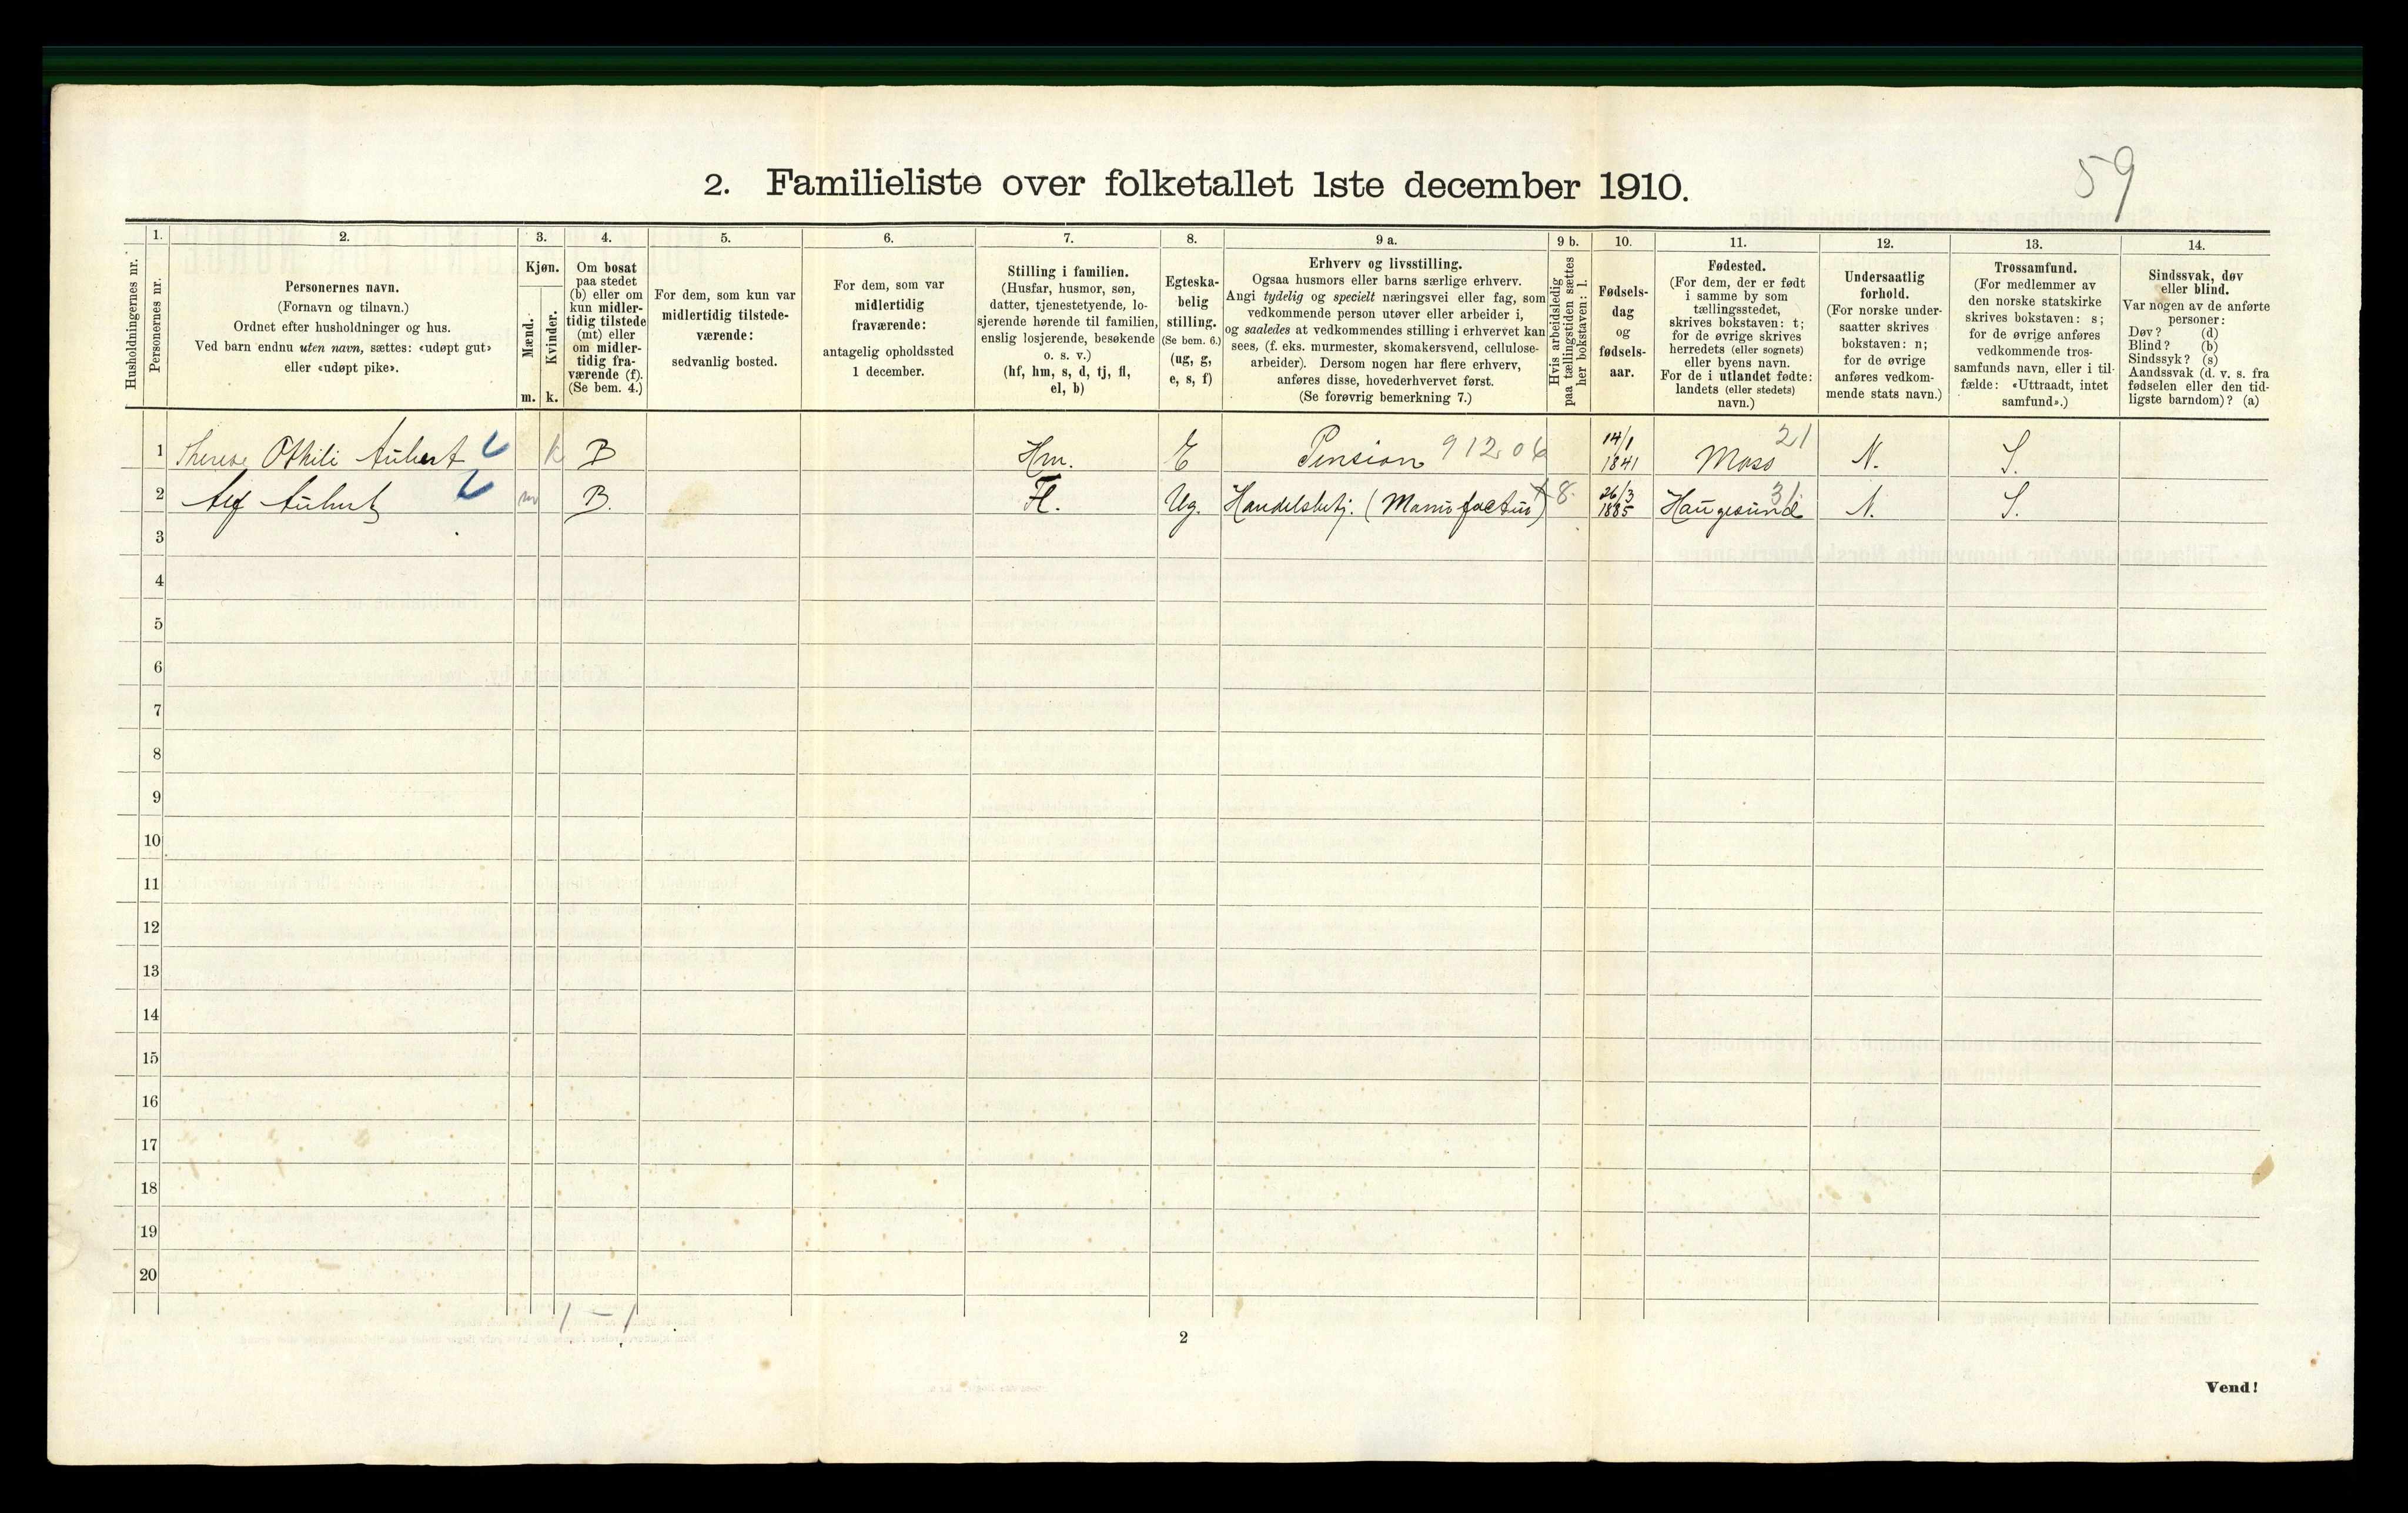 59
2. Familieliste over folketallet 1ste december 1910.
Husholdningernes nr.
1.
Personernes nr.
2.
Personernes navn.
(Fornavn og tilnavn.)
Ordnet efter husholdninger og hus.
Ved barn endnu uten navn, sættes: «udøpt gut»
eller «udøpt pike».
3.
Kjøn.
Mænd.
Kvinder.
m. k.
4.
Om bosat
paa stedet
(b) eller om
kun midler-
tidig tilstede
(mt) eller
om midler-
tidig fra-
værende (f).
(Se bem. 4.)
5.
For dem, som kun var
midlertidig tilstede-
værende:
sedvanlig bosted.
6.
For dem, som var
midlertidig
fraværende:
antagelig opholdssted
1 december.
7.
Stilling i familien.
(Husfar, husmor, søn,
datter, tjenestetyende, lo-
sjerende hørende til familien,
enslig losjerende, besøkende
o. s. v.)
(hf, hm, s, d, tj, fl,
el, b)
8.
Egteska-
belig
stilling.
(Se bem. 6.)
(ug, g,
e, s, f)
9 a.
Erhverv og livsstilling.
Ogsaa husmors eller barns særlige erhverv.
Angi tydelig og specielt næringsvei eller fag, som
vedkommende person utøver eller arbeider i,
og saaledes at vedkommendes stilling i erhvervet kan
sees, (f. eks. murmester, skomakersvend, cellulose-
arbeider). Dersom nogen har flere erhverv,
anføres disse, hovederhvervet først.
(Se forøvrig bemerkning 7.)
9 b.
Hvis arbeidsledig
paa tællingstiden sættes
her bokstaven: l.
10.
Fødsels-
dag
og
fødsels-
aar.
11.
Fødested.
(For dem, der er født
i samme by som
tællingsstedet,
skrives bokstaven: t;
for de øvrige skrives
herredets (eller sognets)
eller byens navn.
For de i utlandet fødte:
landets (eller stedets)
navn.)
12.
Undersaatlig
forhold.
(For norske under-
saatter skrives
bokstaven: n;
for de øvrige
anføres vedkom-
mende stats navn.)
13.
Trossamfund.
(For medlemmer av
den norske statskirke
skrives bokstaven: s;
for de øvrige anføres
vedkommende tros-
samfunds navn, eller i til-
fælde: «Uttraadt, intet
samfund».)
14.
Sindssvak, døv
eller blind.
Var nogen av de anførte
personer:
Døv? (d)
Blind? (b)
Sindssyk? (s)
Aandssvak (d. v. s. fra
fødselen eller den tid-
ligste barndom)? (a)
1 Therese Othili Aubert k B Hm. E Pension 912.06 14/1 1841 Moss 21 N. S.
2 Alf Aubert m B. Fl. Ug. Handelsbetj. (Manufactur) 8. 26/3 1885 Haugesund 31 N. S.
3
4
5
6
7
8
9
10
11
12
13
14
15
16
17
18
19
20
1 – 1
2
Vend!